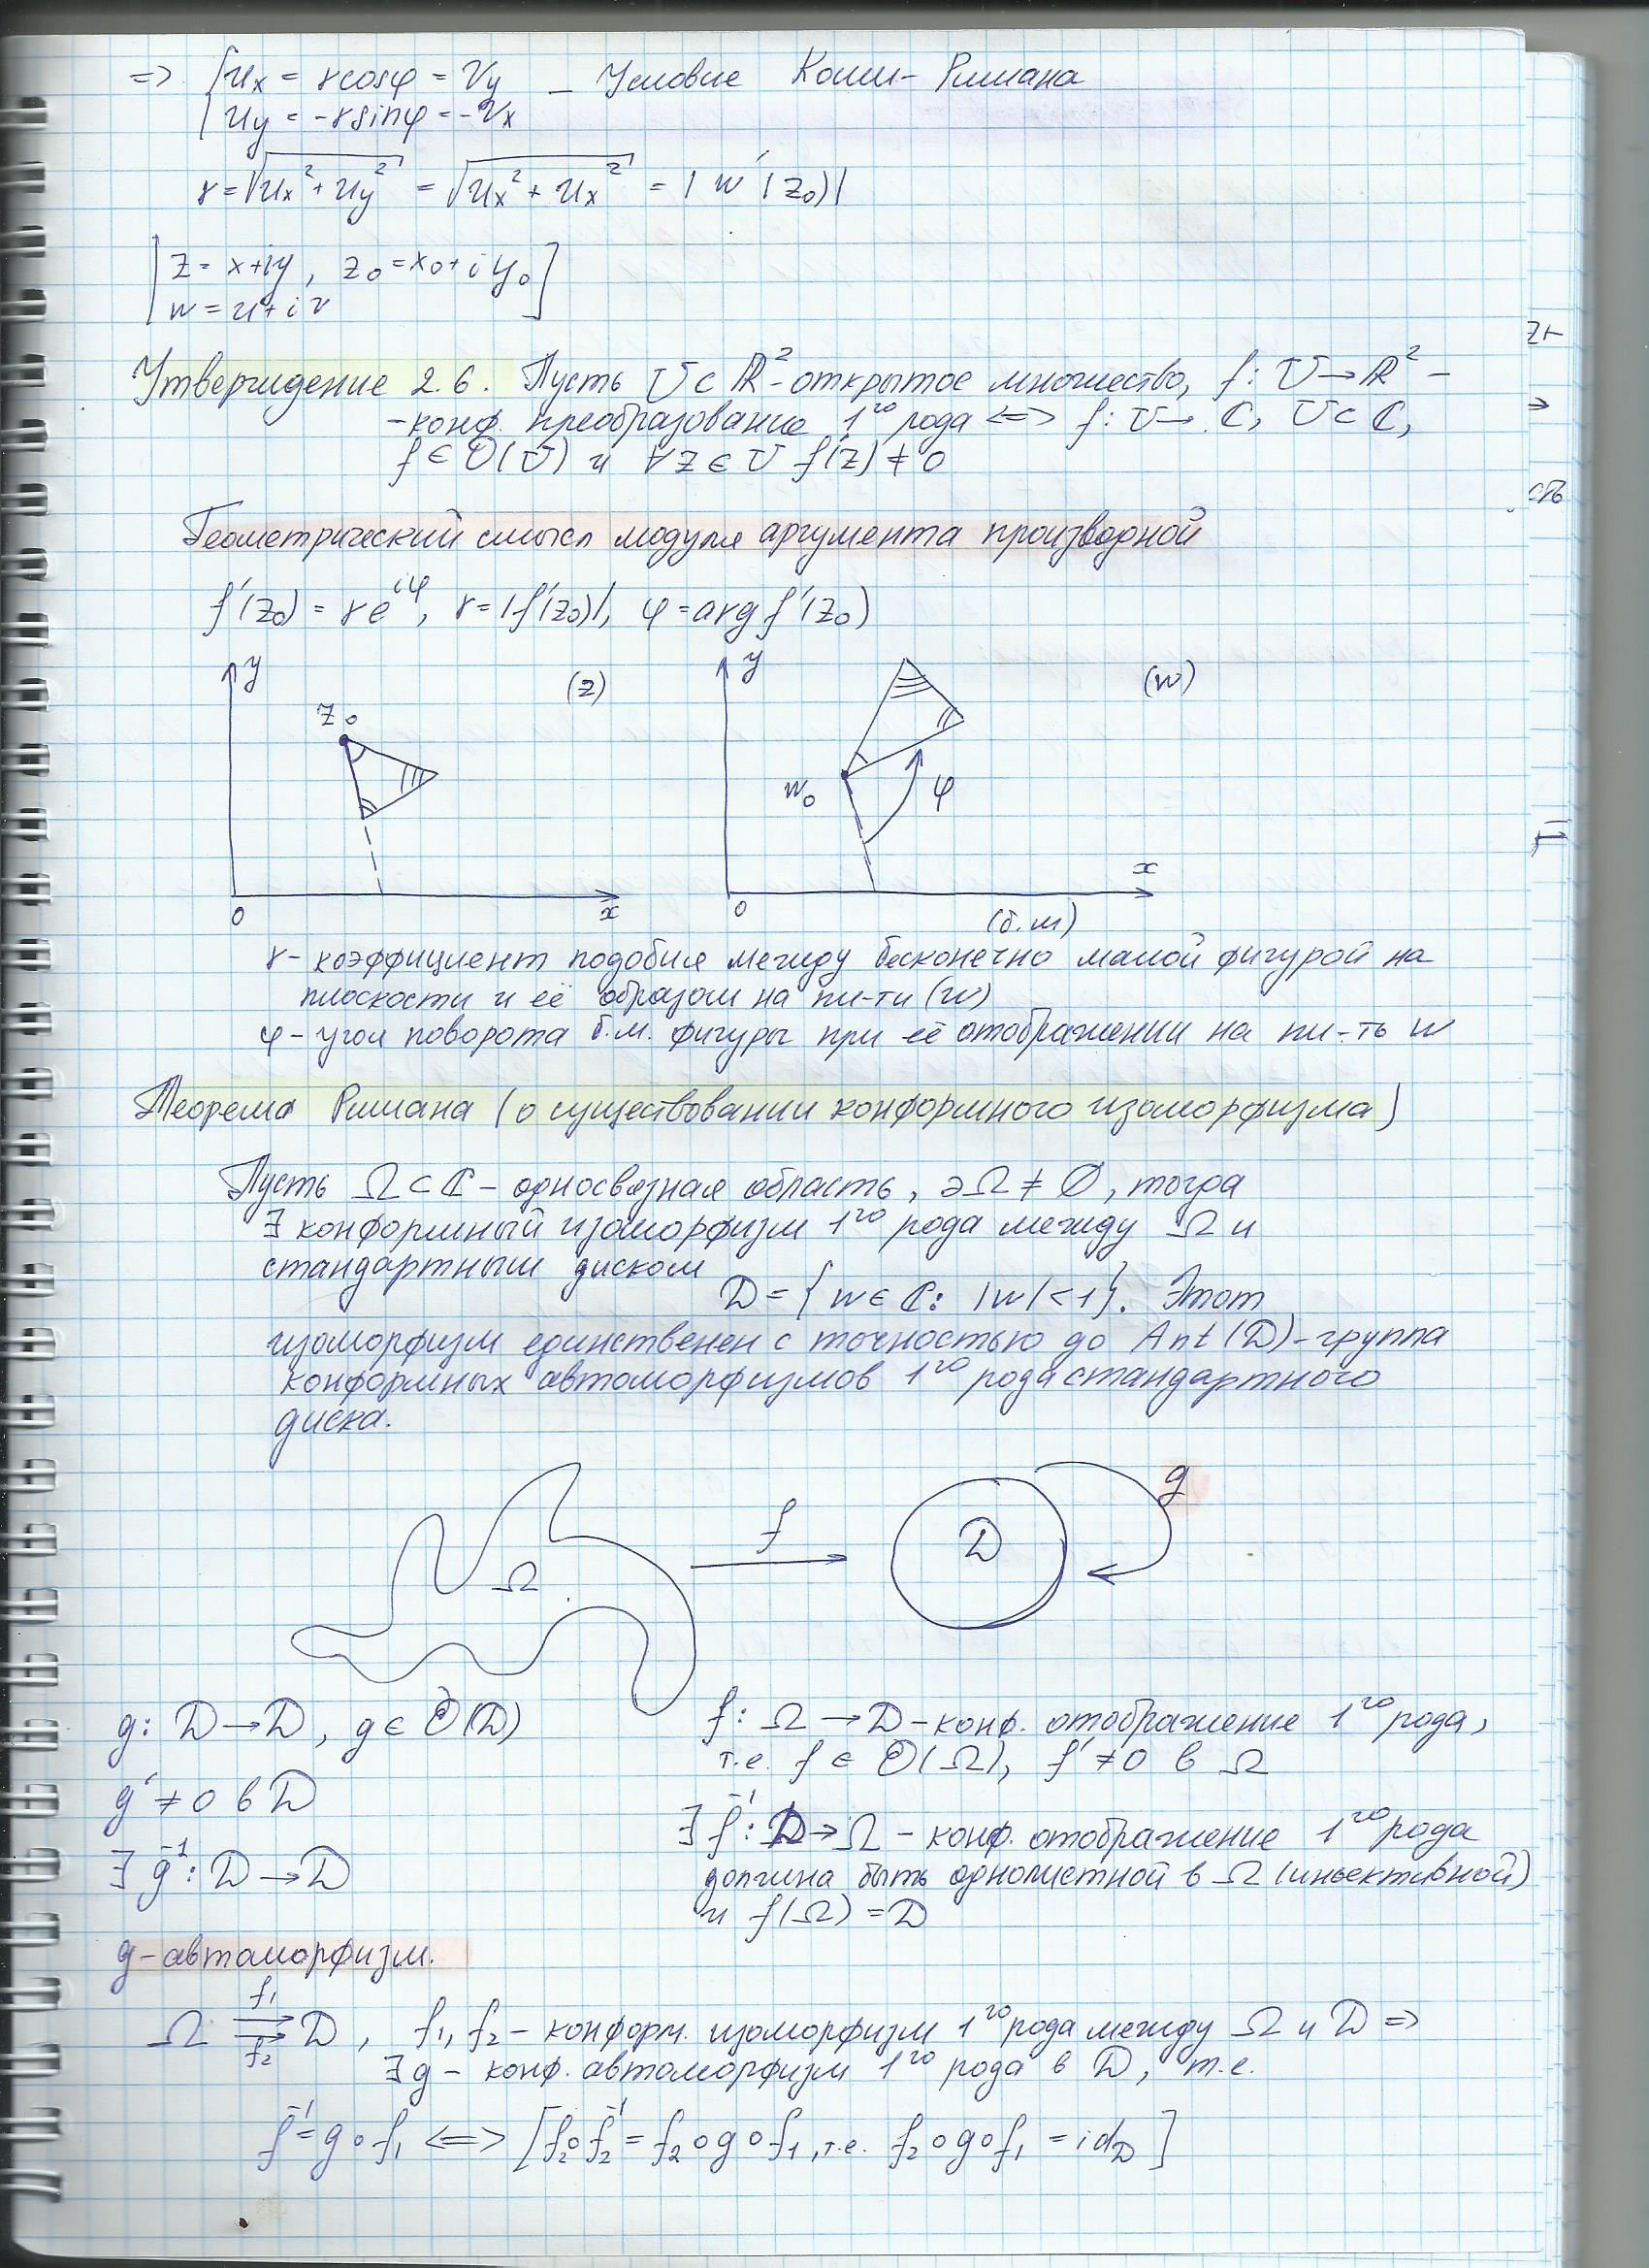 => { u_x = r cosφ = v_y – Условие Коши-Римана
u_y = -r sinφ = -v_x
r = √(u_x² + u_y²) = √(u_x² + u_x²) = |w'(z_0)|
[ z = x+iy, z_0 = x_0 + iy_0 ]
w = u + iv
Утверждение 2.6. Пусть U ⊂ ℝ² - открытое множество, f: U → ℝ² -
- конф. преобразование 1го рода <=> f: U → ℂ, U ⊂ ℂ,
f ∈ O(U) и ∀z ∈ U f'(z) ≠ 0
Геометрический смысл модуля аргумента производной
f'(z_0) = re^{iφ}, r = |f'(z_0)|, φ = arg f'(z_0)
y (z) y (w)
z_0
w_0 φ
x
0 x 0 (б.м)
r - коэффициент подобия между бесконечно малой фигурой на
плоскости и её образом на пл-ти (w)
φ - угол поворота б.м. фигуры при её отображении на пл-ть w
Теорема Римана (о существовании конформного изоморфизма)
Пусть Ω ⊂ ℂ - односвязная область, ∂Ω ≠ ∅, тогда
∃ конформный изоморфизм 1го рода между Ω и
стандартным диском
D = { w ∈ ℂ: |w| < 1 }. Этот
изоморфизм единственен с точностью до Aut(D) - группа
конформных автоморфизмов 1го рода стандартного
диска.
Ω f D g
g: D → D, g ∈ O(D)
g' ≠ 0 в D
∃ g^{-1}: D → D
g - автоморфизм.
f: Ω → D - конф. отображение 1го рода,
т.е. f ∈ O(Ω), f' ≠ 0 в Ω
∃ f^{-1}: D → Ω - конф. отображение 1го рода
должна быть однолистной в Ω (иньективной)
и f(Ω) = D
f_1
Ω ⇉ D, f_1, f_2 - конформ. изоморфизм 1го рода между Ω и D =>
f_2
∃ g - конф. автоморфизм 1го рода в D, т.е.
f^{-1} = g∘f_1 <=> [f_2∘f_2^{-1} = f_2∘g∘f_1, т.е. f_2∘g∘f_1 = id_D]